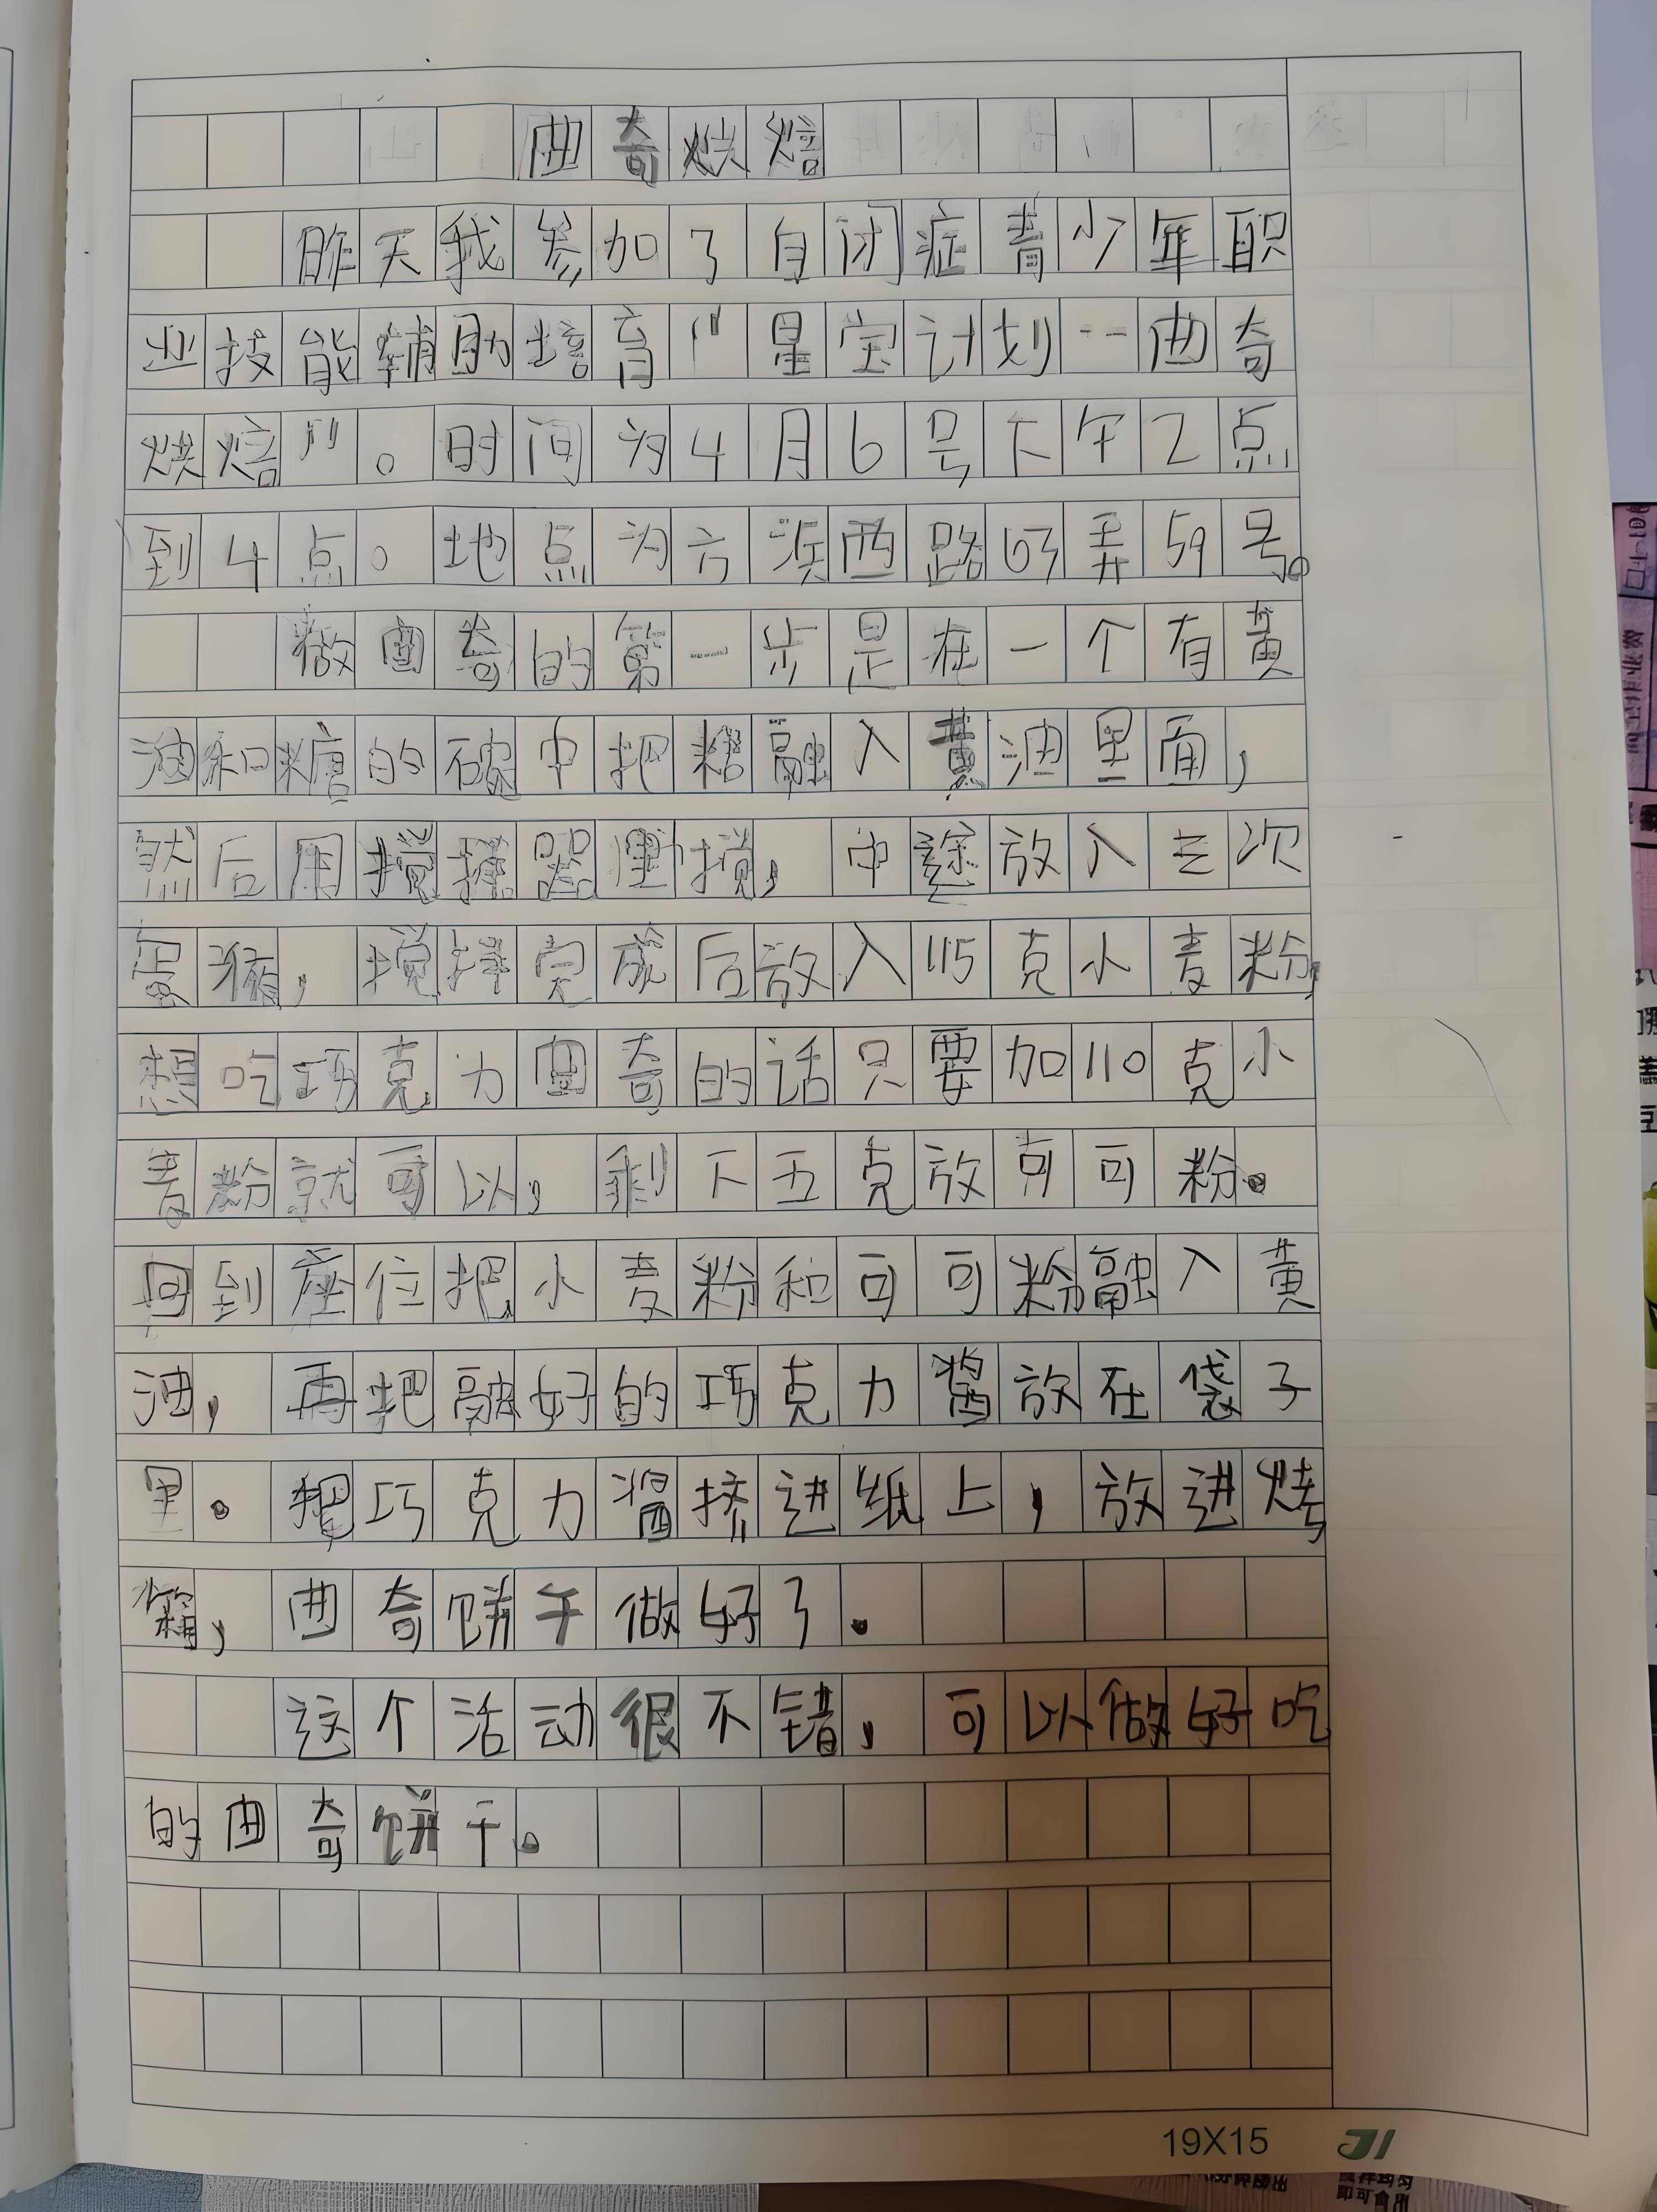 曲奇烘焙
昨天我参加了自闭症青少年职
业技能辅助培育"星宝计划--曲奇
烘焙"。时间为4月6号下午2点
到4点。地点为方浜西路63弄59号。
做曲奇的第一步是在一个有黄
油和糖的碗中把糖融入黄油里面,
然后用搅拌器搅,中途放入三次
蛋液,搅拌完成后放入115克小麦粉,
想吃巧克力曲奇的话只要加110克小
麦粉就可以,剩下五克放可可粉。
回到座位把小麦粉和可可粉融入黄
油,再把融好的巧克力酱放在袋子
里。把巧克力酱挤进纸上,放进烤
箱,曲奇饼干做好了.
这个活动很不错,可以做好吃
的曲奇饼干。
19X15